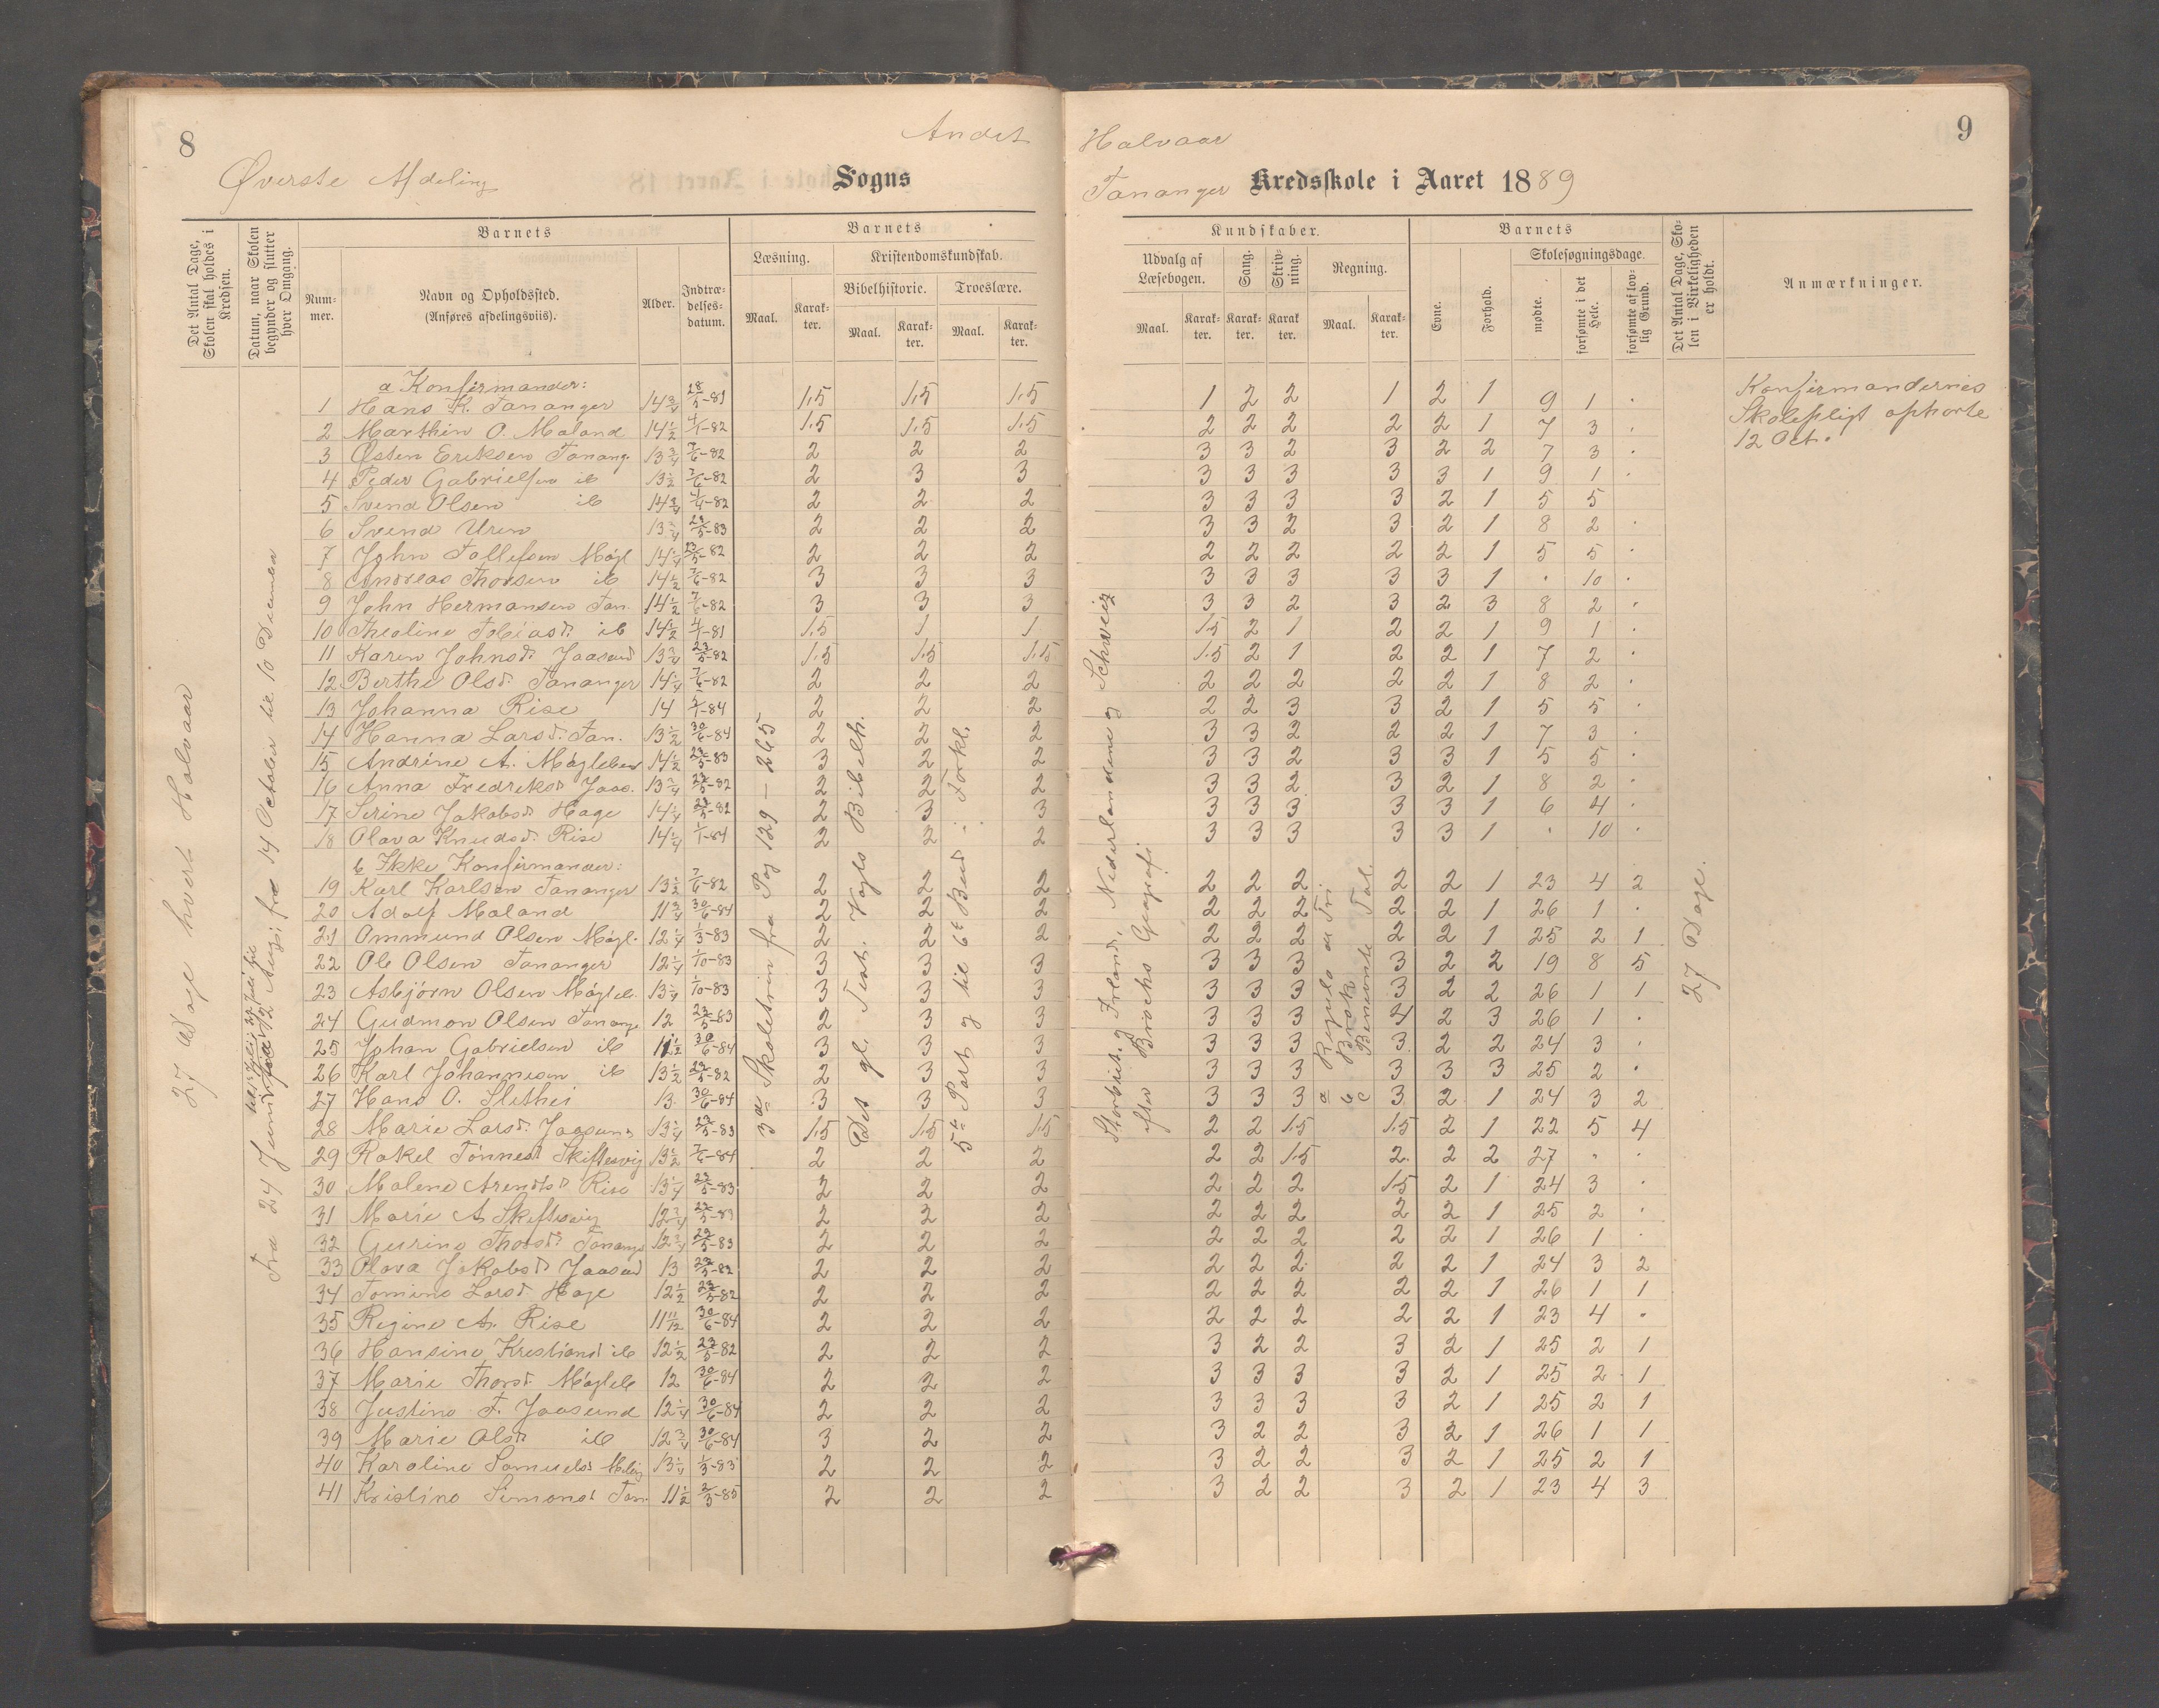 8
Andet
Øverste Afdeling
Sogns
Det Antal Dage, Skolen skal holdes i Kredsen.
Datum, naar Skolen begynder og slutter hver Omgang.
Barnets
Barnets
Læsning.
Kristendomskundskab.
Bibelhistorie.
Troeslære.
Nummer.
Navn og Opholdssted.
(Anføres afdelingsviis).
Alder.
Indtrædelsesdatum.
Maal.
Karakter.
Maal.
Karakter.
Maal.
Karakter.
27 Dage hvert Halvaar
fra 14 October til 10 December
3die Skoletrin fra Pag 129 – 265
Det gl. Test. Vogts Bibelh.
5te Part og til 6te Bud i Forkl.
a Konfirmander:
1 Hans K. Tananger 14 3/4 28/5-81 1.5 1.5 1.5
2 Marthin O. Maland 14 1/2 4/1-82 1.5 1.5 1.5
3 Østen Eriksen Tanang. 13 3/4 7/6-82 2 2 2
4 Peder Gabrielsen ib 13 1/2 7/6-82 2 3 3
5 Svend Olsen ib 14 3/4 4/1-82 2 2 2
6 Svend Uren 13 3/4 23/5-83 2 2 2
7 John Tollefsen Mågl 14 1/4 23/5-82 2 2 2
8 Andreas Thorsen ib 14 1/2 7/6-82 3 3 3
9 John Hermansen Tan. 14 1/2 7/6-82 3 3 3
10 Thealine Tobiasd. ib 14 1/2 4/1-81 1.5 1 1
11 Karen Johnsd. Jaasund 13 3/4 23/5-82 1.5 1.5 1.5
12 Berthe Olsd. Tananger 14 1/4 7/6-82 2 2 2
13 Johanna Rise 14 2/1-84 2 2 2
14 Hanna Larsd. Tan. 13 1/2 30/6-84 2 2 2
15 Andrine A. Mågleben 14 1/2 23/5-83 3 2 2
16 Anna Fredriksd Jaas. 13 3/4 23/5-82 2 2 2
17 Serine Jakobsd Hage 14 1/4 23/5-82 2 3 3
18 Olava Knudsd. Rise 14 1/4 1/1-84 2 2 2
b Ikke Konfirmander:
19 Karl Karlsen Tananger 13 1/2 7/6-82 2 2 2
20 Adolf Maland 11 3/4 30/6-84 2 2 2
21 Ommund Olsen Mågl. 12 1/4 1/3-83 2 2 2
22 Ole Olsen Tananger 12 1/4 1/10-83 3 3 3
23 Asbjørn Olsen Mågleb. 13 1/4 1/10-83 3 3 3
24 Gudmon Olsen Tanange 12 23/5-83 2 3 3
25 Johan Gabrielsen ib 11 1/2 30/6-84 3 3 3
26 Karl Johannesen ib 13 1/2 23/5-82 2 3 3
27 Hans O. Slethei 13 30/6-84 3 3 3
28 Marie Larsd. Jaasund 13 1/4 23/5-83 1.5 1.5 1.5
29 Rakel Tønnesd Skiftesvig 13 1/2 7/6-84 2 2 2
30 Malene Arendtsd Rise 13 1/4 23/5-83 2 2 2
31 Marie A Skiftesvig 12 3/4 23/5-83 2 2 2
32 Gurine Thorsd. Tanange 12 3/4 23/5-83 2 2 2
33 Olava Jakobsd Jaasund 13 23/5-82 2 2 2
34 Tomine Larsd. Hage 12 1/2 23/5-82 2 2 2
35 Regine A. Rise 11 11/12 30/6-84 2 2 2
36 Hansine Kristiansd ib 12 1/2 23/5-82 2 2 2
37 Marie Thorsd. Mågleb 12 30/6-84 2 2 2
38 Justine T. Jaasund 12 1/4 30/6-84 2 2 2
39 Marie Olsd ib 12 3/4 30/6-84 3 2 2
40 Karoline Samuelsd Meling 13 1/4 1/3-83 2 2 2
41 Kristine Simonsd Tan. 11 1/2 2/3-85 2 2 2
9
Halvaar
Tananger Kredsskole i Aaret 1889
Kundskaber.
Barnets
Udvalg af Læsebogen.
Sang.
Skrivning.
Regning.
Skolesøgningsdage.
Maal.
Karakter.
Karakter.
Karakter
Maal.
Karakter.
Evne.
Forhold.
mødte.
forsømte i det Hele.
forsømte af lovlig Grund.
Det Antal Dage, Skolen i Virkeligheden er holdt.
Anmærkninger.
Storbrit. og Irland, Nederlandene og Schweiz
efter Brochs Geografi
a Regula de Tri
b Brøk
c Benevnte Tal.
27 Dage.
Konfirmandernes
Skolepligt ophørte
12 Oct.
1 2 2 1 2 1 9 1 .
2 2 2 2 2 1 7 3 .
3 3 2 3 2 2 7 3 .
3 3 3 3 3 1 9 1 .
3 3 3 3 2 1 5 5 .
3 3 2 3 2 1 8 2 .
2 2 2 2 2 1 5 5 .
3 3 3 3 3 1 . 10 .
3 3 2 3 2 3 8 2 .
1.5 2 1 2 2 1 9 1 .
1.5 2 1 2 2 1 7 2 .
2 2 2 2 2 1 8 2 .
2 2 3 3 2 1 5 5 .
3 3 2 2 2 1 7 3 .
3 3 2 3 3 1 5 5 .
3 3 2 3 2 1 8 2 .
3 3 3 3 3 1 6 4 .
3 3 3 3 3 1 . 10 .
2 2 2 2 2 1 23 4 2
2 2 2 2 2 1 26 1 .
2 2 2 2 2 1 25 2 1
3 3 3 3 2 2 19 8 5
3 3 3 3 2 2 26 1 1
3 3 3 4 2 3 26 1 .
3 3 3 3 2 2 24 3 .
3 3 3 3 3 3 25 2 .
3 3 3 3 2 1 24 3 2
2 2 1.5 1.5 2 1 22 5 4
2 2 1.5 2 2 2 27 . .
2 2 2 1.5 2 1 24 3 .
2 2 2 2 2 1 25 2 .
2 2 2 2 2 1 26 1 .
2 2 2 2 2 1 24 3 2
2 2 2 2 2 1 26 1 1
2 2 2 2 2 1 23 4 .
3 2 2 3 2 1 25 2 1
3 3 3 3 2 1 25 2 1
3 3 3 3 2 1 25 2 1
3 2 2 3 2 1 26 1 1
3 2 2 3 2 1 25 2 1
3 2 2 3 2 1 23 4 3